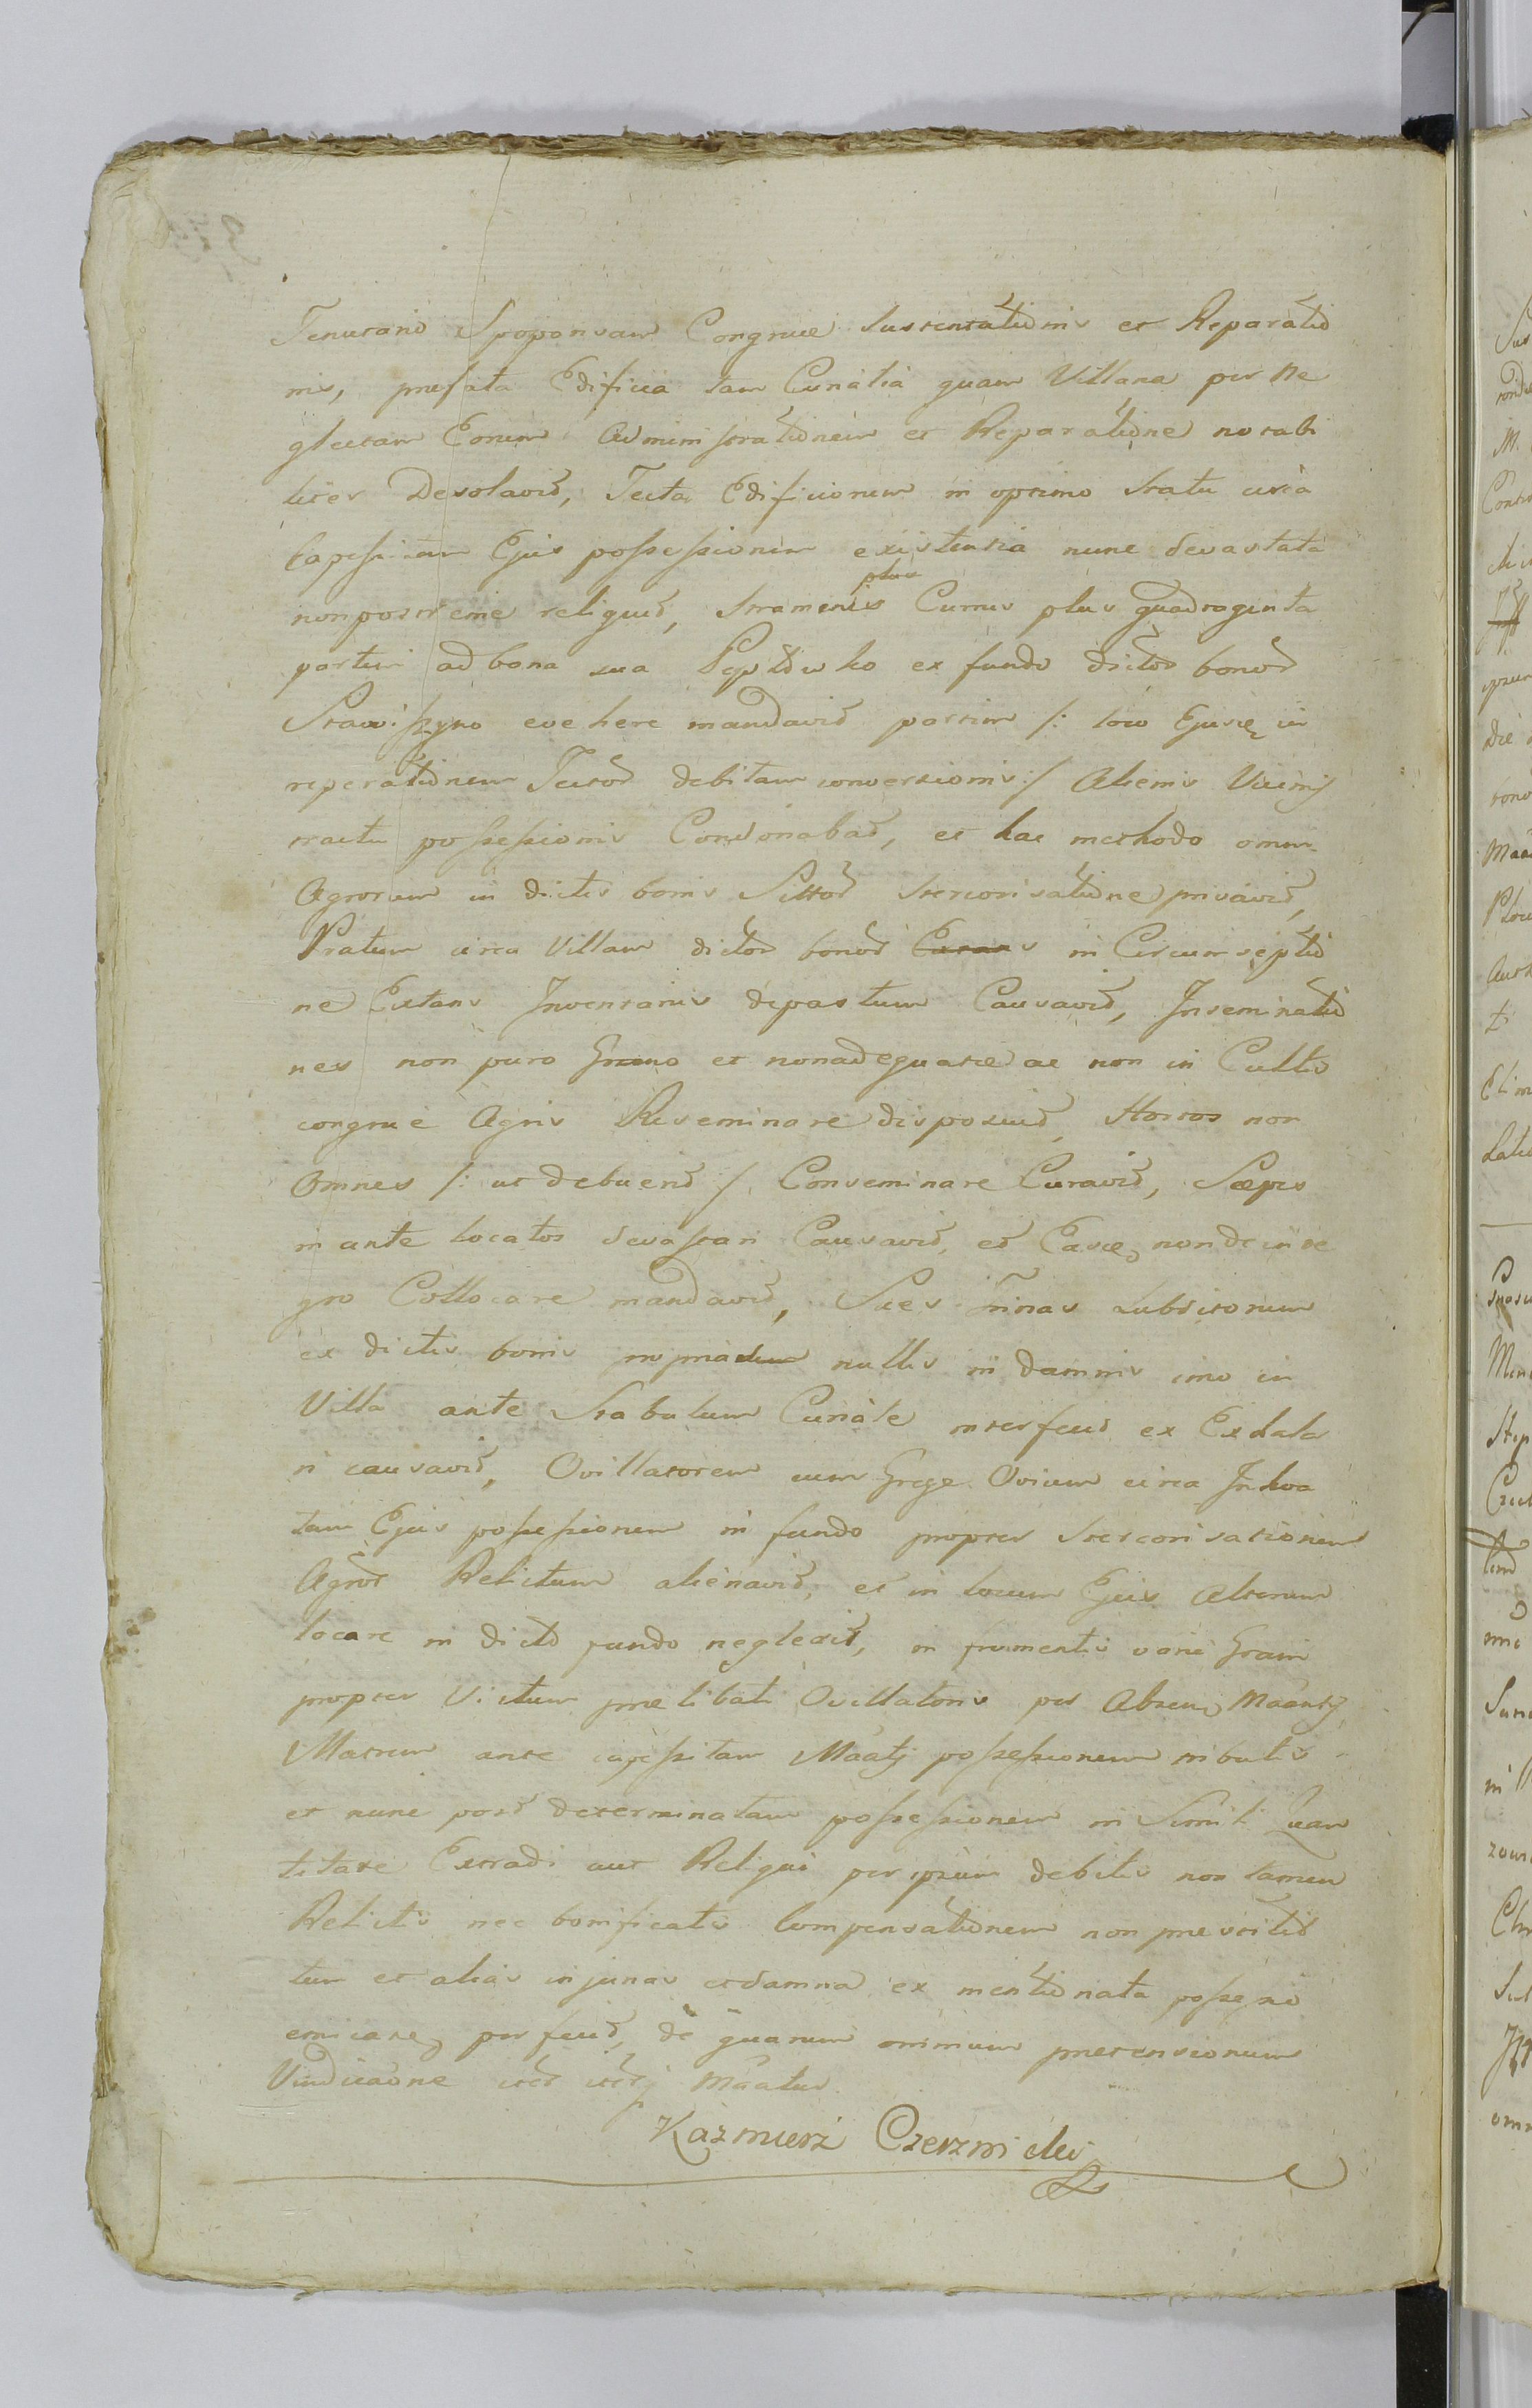 Tenutario Sposponsam Congruae Sustentationis et Reparatio
nis, praefata Edificia tam Curialia quam Villana per Ne
glectam Eorum Administrationem et Reparatione notabi
liter Desolavit, Tecta Edificiorum in optimo Statu circa
Capessitam Ejus possessionem existentia nunc devastata
reliquit, Straminis plus Currus plus quadraginta
partim ad bona sua ex fundo dictor bonor
Stawiszyno evehere mandavit partim /: loco Ejusq in
reperationem Tector debitam conversionis :/ Alienis Vicinis
tractu possessionis Condonabat, et hac methodo omnem
Agrorum in dictis bonis Sittor stercorisatione privavit,
Pratum circa Villam dictor bonor Extans in Circumseptio
ne Extans Inventariis depastum Causavit, Inseminatio
nes non puro Grano et nonadequate ac non in Cultis
congrue Agris Reseminare disposuit, Hortos non
omnes /: ut debuerit :/ Conseminare Curavit, Sepes
in ante locatos devastari Causavit, et Easq non de inte
gro Collocare mandavit, Sues trinas subditorum
ex dictis bonis nullis in damnis imo in
Villa ante Stabulum Curiale interfecit ex
ri causavit, Ovillatorem cum Grege Ovium circa Inhoa
tam Ejus possessionem in fundo propter stercorisationem
Agror Relictum alienavit, et in locum Ejus Alterum
locare in dicto fundo neglexit, in frumentis varii Grani
propter Victum praelibati Ovillatoris per
Matrem ante capessitam Maatj possessionem tributis
et nunc post determinatam possessionem in Simili Quan
titate Extradi aut Relinqui per ipsum debitis non tamen
Relictis nec bonificatis Compensationem non praestitit
tum et alias injurias et damna ex mentionata possessio
emicare perfecit, de quarum omnium praetensionum
Vindicaone Maatus
Kazmierz Czerznicki